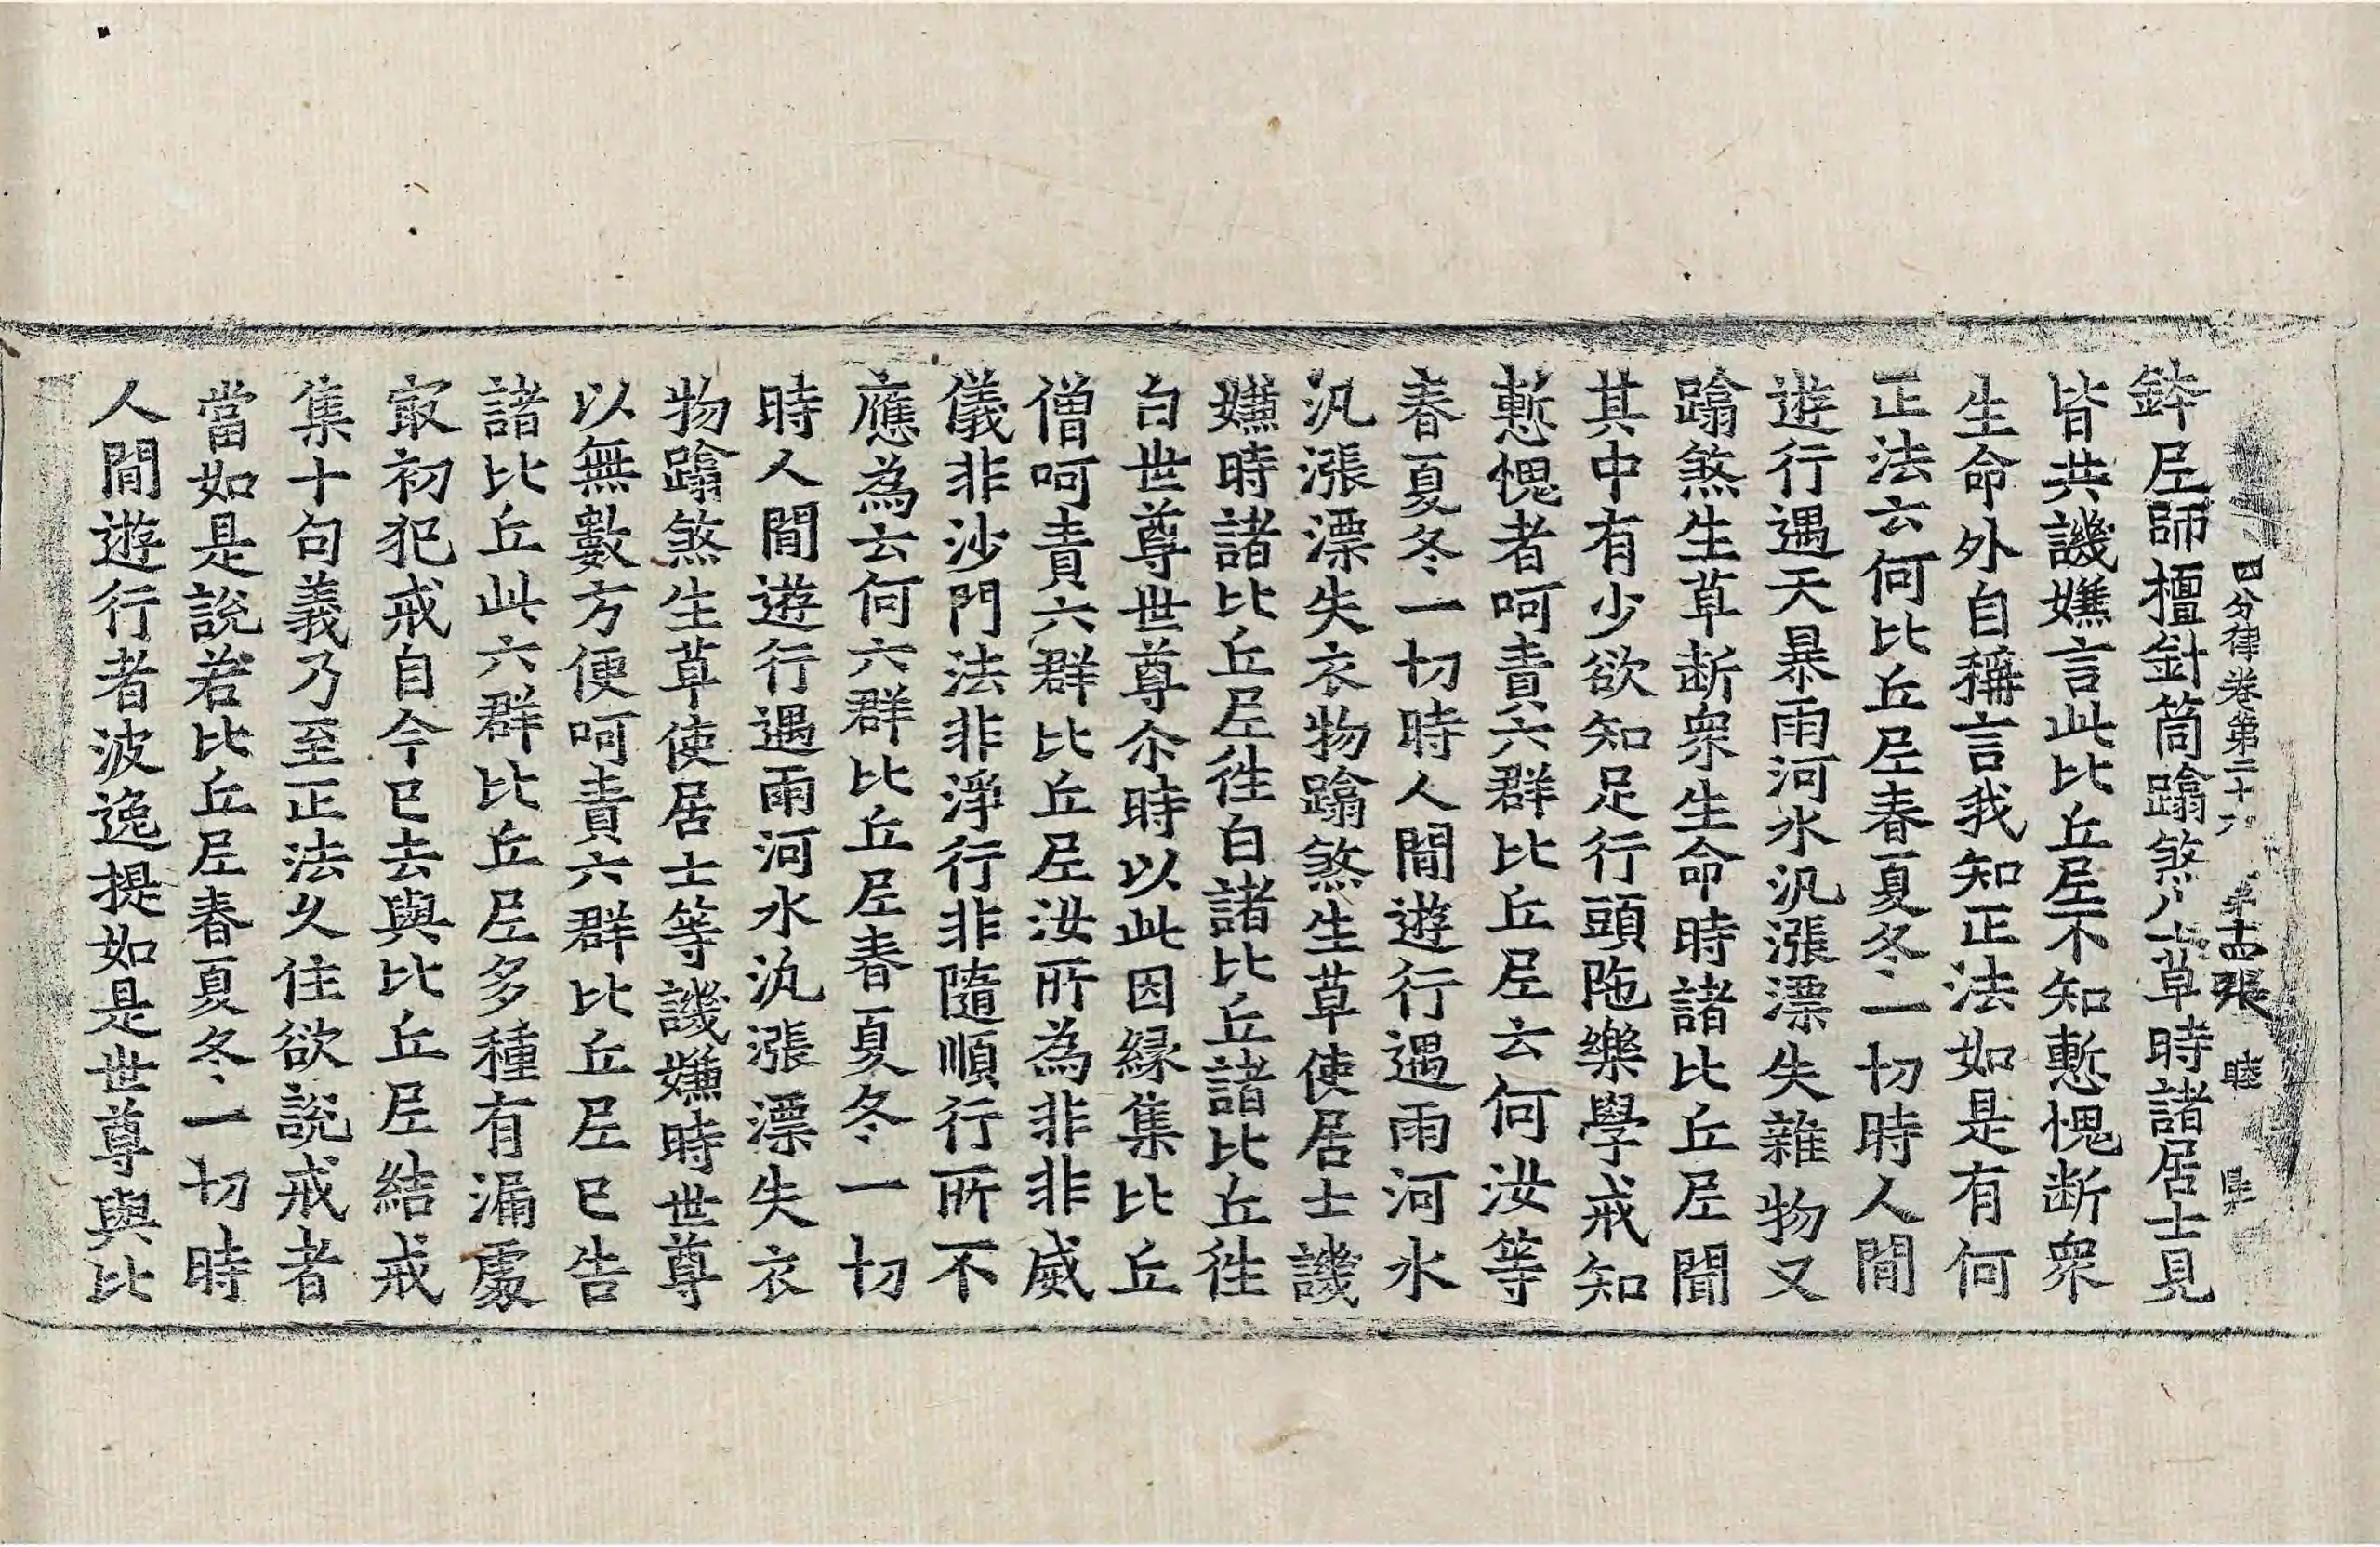 四分律卷第二十六 第十四張 睦
鉢尼師檀針筒蹹煞生草時諸居士見
皆共譏嫌言此比丘尼不知慙愧断衆
生命外自稱言我知正法如是有何
正法云何比丘尼春夏冬一切時人間
遊行遇天暴雨河水汎漲漂失雜物又
蹹煞生草断衆生命時諸比丘尼聞
其中有少欲知足行頭陁樂學戒知
慙愧者呵責六群比丘尼云何汝等
春夏冬一切時人間遊行遇雨河水
汎漲漂失衣物蹹煞生草使居士譏
嫌時諸比丘尼徃白諸比丘諸比丘徃
白世尊世尊尒時以此因緣集比丘
僧呵責六群比丘尼汝所為非非威
儀非沙門法非淨行非隨順行所不
應為云何六群比丘尼春夏冬一切
時人間遊行遇雨河水汎漲漂失衣
物蹹煞生草使居士等譏嫌時世尊
以無數方便呵責六群比丘尼已告
諸比丘此六群比丘尼多種有漏處
㝡初犯戒自今已去與比丘尼結戒
集十句義乃至正法久住欲說戒者
當如是說若比丘尼春夏冬一切時
人間遊行者波逸提如是世尊與比